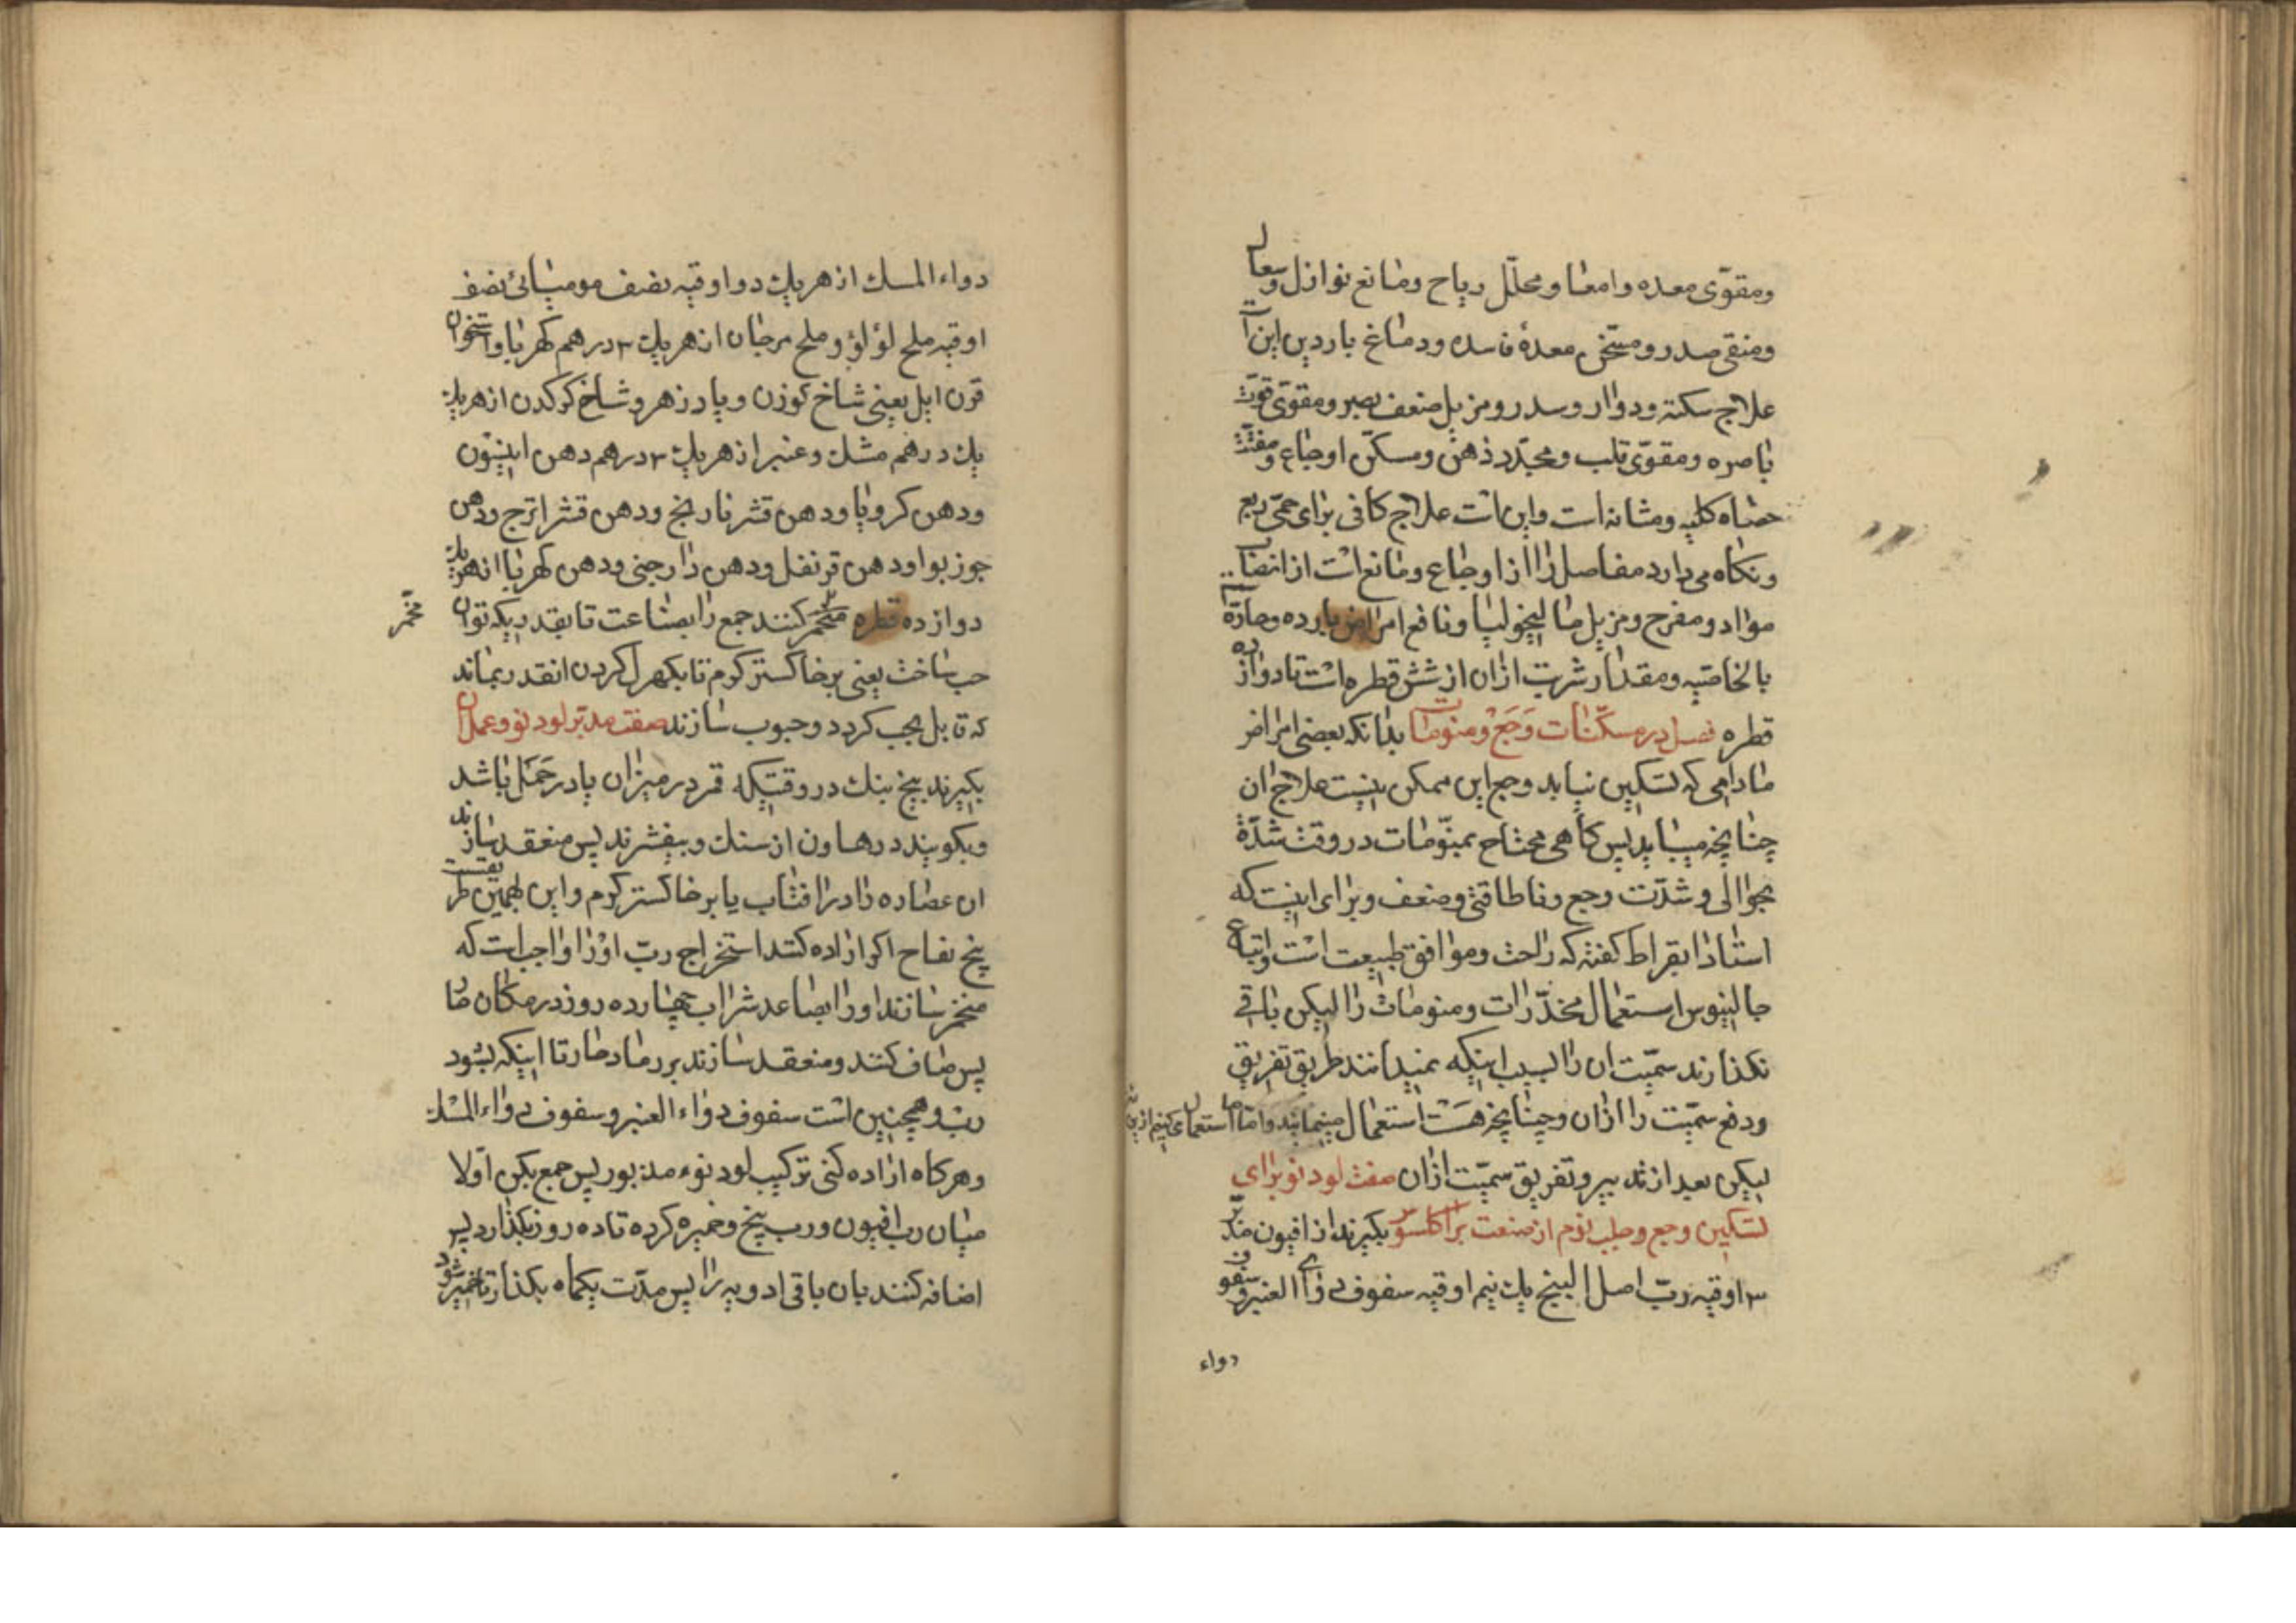 ومقوّی معده وامعا ومحلّل ریاح ومانع نوازل وسعال
ومنقی صدر ومسخّن معدهٔ فاسده ودماغ باردین این است
علاج سکته ودوار وسدر ومزیل ضعف بصر ومقوّی قوّت
باصره ومقوّی قلب ومجدّد ذهن ومسکّن اوجاع ومفتّت
حصاه کلیه ومثانه است واین است علاج کافی برای حمّی ربع
ونکاه می دارد مفاصل را از اوجاع ومانع است از انصباب
مواد ومفرح ومزیل مالیخولیا ونافع امراض بارده وحارّه
بالخاصیه ومقدار شربت ازان از شش قطره است تا دوازده
قطره فصل در مسکّنات وَجَع ومنوّمات بدانکه بعضی امراض
مادامی که تسکین نیابد وجع این ممکن نیست علاج ان
چنانچه میباید پس کاهی محتاج بمنوّمات در وقت شدّة
بجوالی وشدّت وجع وناطاقتی وضعف وبرای اینست که
استاد ابقراط کفته که راحت وموافق طبیعت است واتباع
جالینوس استعمال مخدّرات ومنومات را لیکن باقی
نکذارند سمّیت ان را بسبب اینکه نمیدانند طریق تفریق
ودفع سمّیت را ازان وچنانچه هست استعمال مینمایند واما ما استعمال می کنیم ازین
لیکن بعد از تدبیر وتفریق سمّیت ازان صفت لودنو برای
تسکین وجع وجلب نوم از صنعت براکلسوس بکیرند از افیون مدبّر
۳ اوقیه ربّ اصل البنج یك نیم اوقیه سفوف دواء العنبر وسفوف
دواء
دواء المسك از هریك دو اوقیه نصف مومیائی نصف
اوقیه ملح لؤلؤ وملح مرجان از هریك ۳ درهم کهربا واستخوان
قرن ایل یعنی شاخ کوزن وپادزهر وشاخ کرکدن از هریك
یك درهم مشك وعنبر از هریك ۳ درهم دهن انیسون
ودهن کرویا ودهن قشر نارنج ودهن قشر اترج ودهن
جوز بوا ودهن قرنفل ودهن دارچینی ودهن کهربا از هریك
دوازده قطره متخمر کنند جمع را بصناعت تا بقدریکه توان
مخمّر
حب ساخت یعنی بر خاکستر کرم تا بکهرل کردن انقدر بماند
که قابل بحب کردد وحبوب سازند صفت مدبّر لودنو وعمل ان
بکیرند بیخ بنك در وقتیکه قمر در میزان یا در حَمَل باشد
وبکوبند در هاون از سنك وبیفشرند پس منعقد سازند
ان عصاره را در افتاب یا بر خاکستر کرم واین بهمین طریقست
بیخ تفاح اکر اراده کنند استخراج ربّ او را واجب است که
متخمر سازند او را بصاعد شراب چهارده روز در مکان حار
پس صاف کنند ومنعقد سازند بر رماد حار تا اینکه بشود
ربّ وهمچنین است سفوف دواء العنبر وسفوف دواء المسك
وهرکاه اراده کنی ترکیب لودنوء مذبور پس جمع بکن اوّلا
میان ربّ افیون ورب بنج وخمیره کرده تا ده روز بکذارد پس
اضافه کنند بان باقی ادویه را پس مدّت یکماه بکذار تا خمیر شود